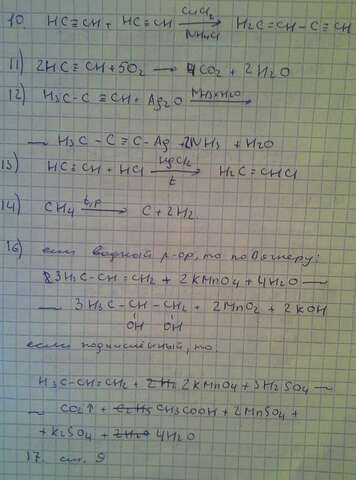 10. HC≡CH + HC≡CH —CuCl₂/NH₄Cl→ H₂C=CH-C≡CH
11) 2HC≡CH + 5O₂ → 4CO₂ + 2H₂O
12) H₃C-C≡CH + Ag₂O —NH₃×H₂O→
— H₃C-C≡C-Ag + 2NH₃ + H₂O
13) HC≡CH + HCl —HgCl₂/t→ H₂C=CHCl
14) CH₄ —t,p→ C + 2H₂
16) если водный р-ор, то по Вагнеру:
3H₃C-CH=CH₂ + 2KMnO₄ + 4H₂O —
— 3H₃C-CH-CH₂ + 2MnO₂ + 2KOH
OH OH
если подкислённый, то:
H₃C-CH=CH₂ + 2KMnO₄ + 3H₂SO₄ —
— CO₂↑ + CH₃COOH + 2MnSO₄ +
+ K₂SO₄ + 4H₂O
17. см. 9